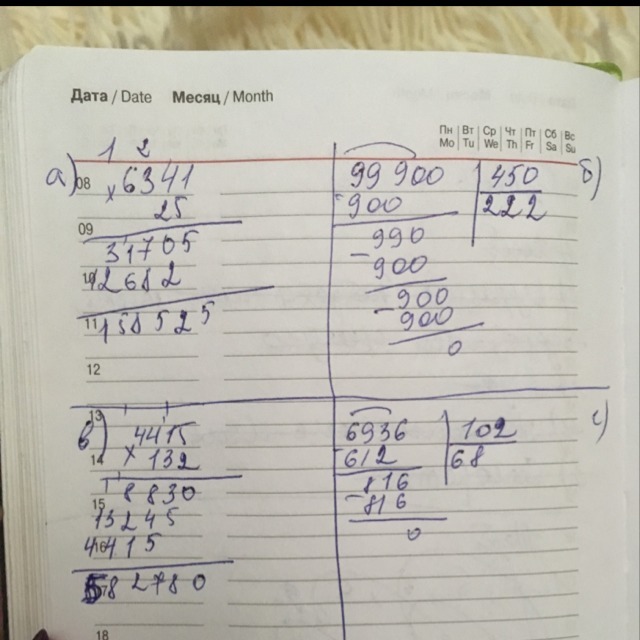 Дата / Date Месяц / Month
Пн Вт Ср Чт Пт Сб Вс
Mo Tu We Th Fr Sa Su
1 2
а) 08 × 6341
25
09
31705
10 12682
11 158525
12
99900 450 б)
- 900 222
990
- 900
900
- 900
0
13
в) 4415
14 × 132
8830
15
13245
16 4415
582780
18
6936 102 с)
612 68
816
- 816
0